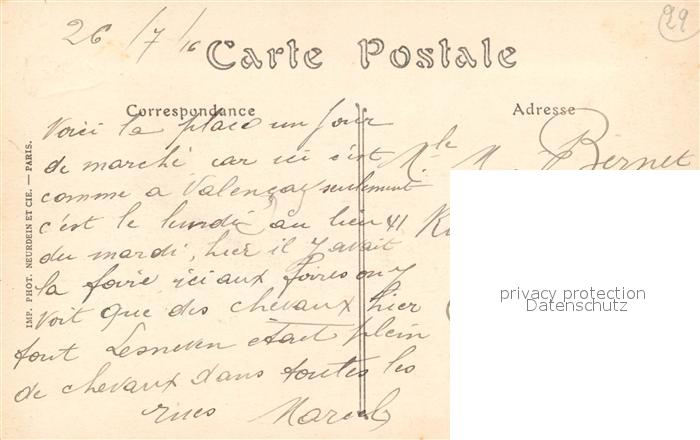 26/7/16
29
Carte Postale
Correspondance
Adresse
Voici la place un jour
de marché car ici s'est
comme a Valençay seulement
c'est le lundi au lieu
du mardi, hier il y avait
la foire ici aux foires on y
voit que des chevaux hier
tout Lesneven etait plein
de chevaux dans toutes les
rues Marcel
Mlle M. Bernet
41 R
IMP. PHOT. NEURDEIN ET CIE. — PARIS.
privacy protection
Datenschutz